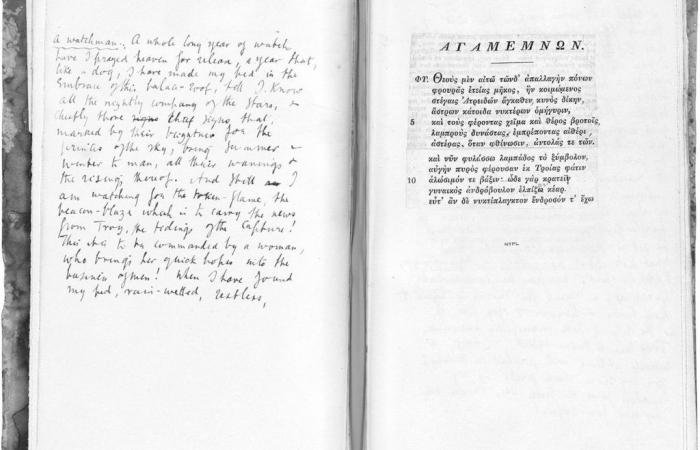 a watchman.. A whole long year of watch
have I prayed heaven for release, a year that,
like a dog, I have made my bed in the
embrace of this palace-roof, till I know
all the nightly company of the stars, &
chiefly those signs chief signs that,
marked by their brightness for the
of the sky, bring summer &
winter to man, all their wanings &
the risings thereof. And still I
am watching for the token-flame, the
beacon-blaze which is to carry the news
from Troy, the tidings of the capture!
This is to be commanded by a woman,
who brings her quick hopes into the
business of men! When I have found
my bed, rain-wetted, restless,
ΑΓΑΜΕΜΝΩΝ.
ΦΥ. Θεοὺς μὲν αἰτῶ τῶνδ' ἀπαλλαγὴν πόνων
φρουρᾶς ἐτείας μῆκος, ἣν κοιμώμενος
στέγαις Ἀτρειδῶν ἄγκαθεν, κυνὸς δίκην,
ἄστρων κάτοιδα νυκτέρων ὁμήγυριν,
5 καὶ τοὺς φέροντας χεῖμα καὶ θέρος βροτοῖς
λαμπροὺς δυνάστας, ἐμπρέποντας αἰθέρι
ἀστέρας, ὅταν φθίνωσιν, ἀντολάς τε τῶν.
καὶ νῦν φυλάσσω λαμπάδος τὸ ξύμβολον,
αὐγὴν πυρὸς φέρουσαν ἐκ Τροίας φάτιν
10 ἁλώσιμόν τε βάξιν· ὧδε γὰρ κρατεῖν
γυναικὸς ἀνδρόβουλον ἐλπίζω κέαρ.
εὖτ' ἂν δὲ νυκτίπλαγκτον ἔνδροσόν τ' ἔχω